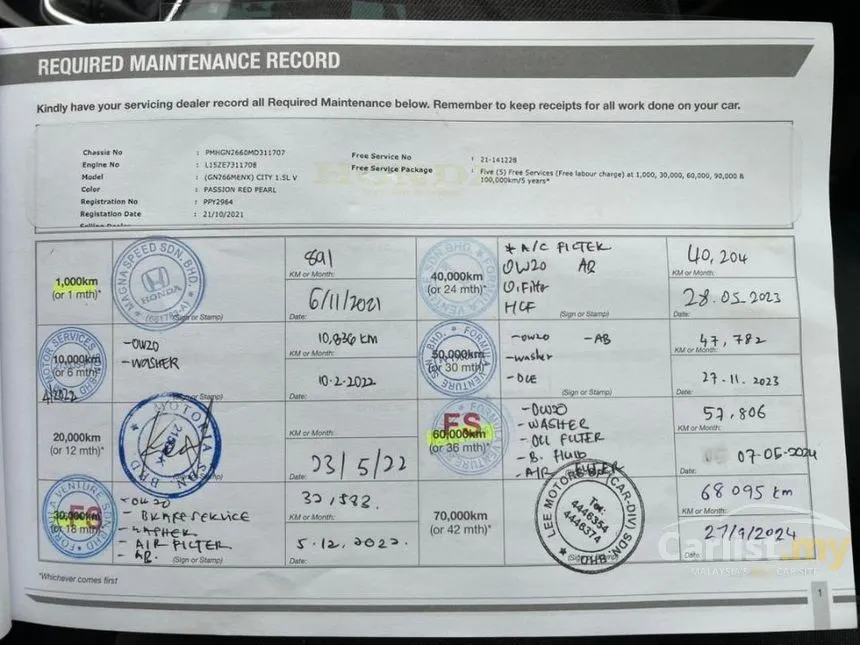 REQUIRED MAINTENANCE RECORD
Kindly have your servicing dealer record all Required Maintenance below. Remember to keep receipts for all work done on your car.
Chassis No : PMHGN2660MD311707
Engine No : L15ZE7311708
Model : (GN266MENX) CITY 1.5L V
Color : PASSION RED PEARL
Registration No : PPY2964
Registation Date : 21/10/2021
Free Service No : 21-141228
Free Service Package : Five (5) Free Services (Free labour charge) at 1,000, 30,000, 60,000, 90,000 &
100,000km/5 years*
HONDA
1,000km
(or 1 mth)*
MAGNASPEED SDN. BHD.
HONDA
(Sign or Stamp)
891
KM or Month:
6/11/2021
Date:
10,000km
(or 6 mth)*
4/2022
-OW20
-WASHER
(Sign or Stamp)
10,836 KM
KM or Month:
10-2-2022
Date:
20,000km
(or 12 mth)*
KM or Month:
23/5/22
Date:
30,000km
(or 18 mth)*
FS
-OW20
- BRAKE SERVICE
- WASHER
- AIR FILTER
- AB.
(Sign or Stamp)
32,583.
KM or Month:
5.12.2022.
Date:
40,000km
(or 24 mth)*
* A/C FILTER
OW20 AB
O.Filter
HCF
(Sign or Stamp)
40,204
KM or Month:
28.05.2023
Date:
50,000km
(or 30 mth)*
-OW20 -AB
-washer
(Sign or Stamp)
47,782
KM or Month:
27-11.2023
Date:
60,000km
(or 36 mth)*
FS
-OW20
- WASHER
- OIL FILTER
- B. FLUID
- AIR FILTER
57,806
KM or Month:
07-05-2024
Date:
70,000km
(or 42 mth)*
LEE MOTORS (CAR-DIV) SDN. BHD.
Tel:
4446354
4446374
68095 km
KM or Month:
27/9/2024
Date:
*Whichever comes first
1
Carlist.my
MALAYSIA'S NO.1 CAR SITE